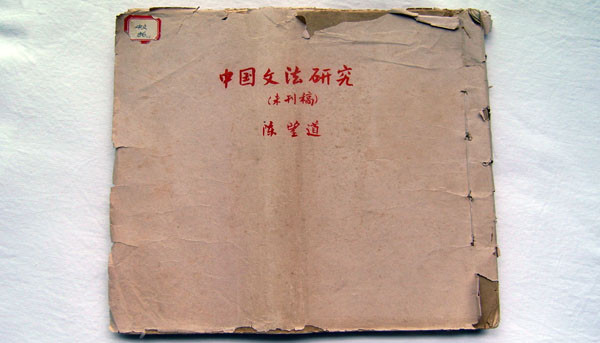 中国文法研究
(未刊稿)
陈望道